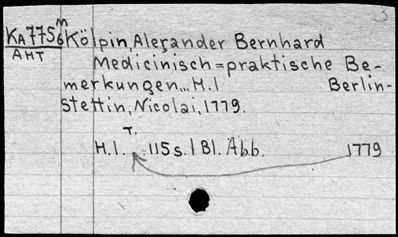 KA 7756 m Kölpin, Alexander Bernhard
AHT
Medicinisch=praktische Be-
merkungen... H.1 Berlin-
Stettin, Nicolai, 1779.
T.
H.1. 115 s. 1 Bl. Abb. 1779